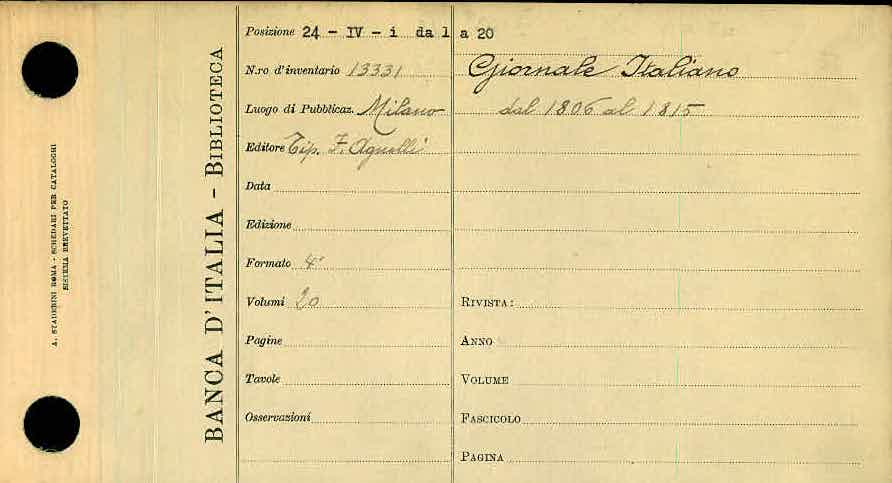 Posizione 24 - IV - i dal 1 a 20
N.ro d'inventario 13331
Luogo di Pubblicaz. Milano
Editore Tip. F. Agnelli
Data
Edizione
Formato 4°
Volumi 20
Pagine
Tavole
Osservazioni
Giornale Italiano
dal 1806 al 1815
RIVISTA:
ANNO
VOLUME
FASCICOLO
PAGINA
BANCA D'ITALIA - BIBLIOTECA
A. STADERINI ROMA - SCHEDARI PER CATALOGHI
SISTEMA BREVETTATO